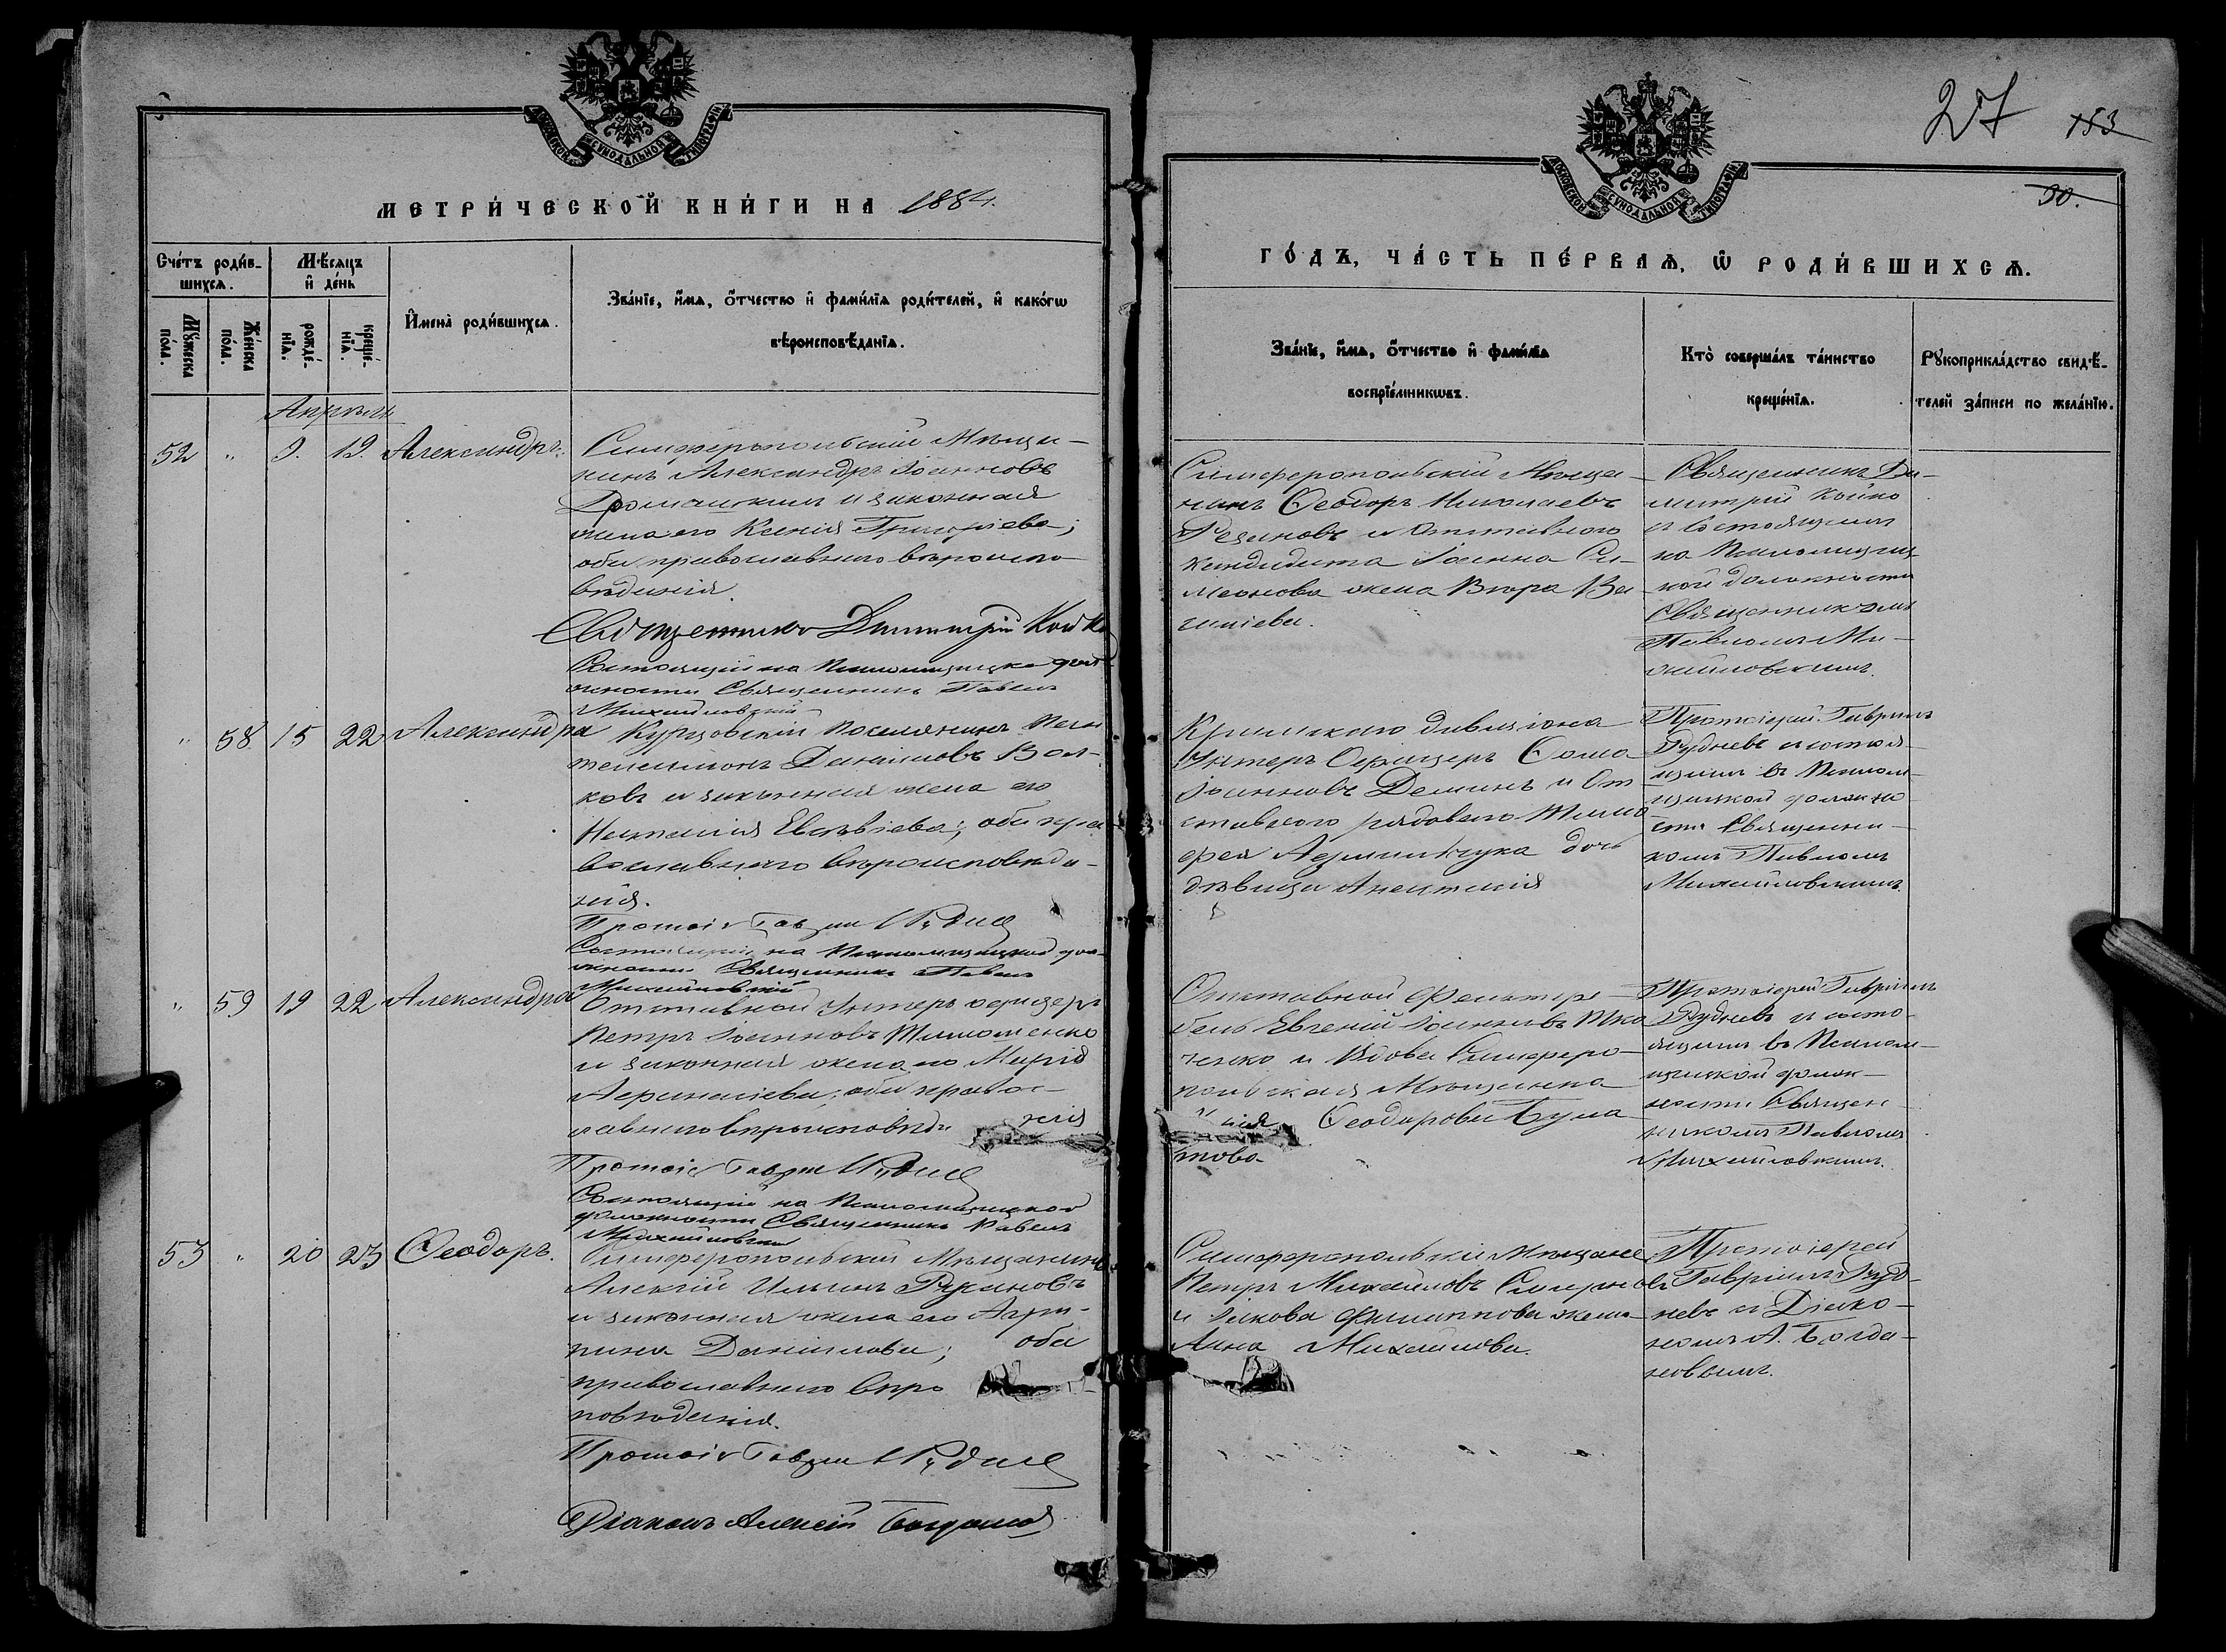 МОСКОВСКОЙ СѴНОДАЛЬНОЙ ТИПОГРАФІИ
МЕТРИ́ЧЕСКОЙ КНИ́ГИ НА 1884.
Сче́тъ роди́в-
шихсѧ.
Мѣ́сѧцъ
и҆ де́нь
Мꙋ́жеска
по́ла.
Же́нска
по́ла.
рожде́-
нїѧ.
креще́-
нїѧ.
И҆мена̀ роди́вшихсѧ.
Зва́нїе, и҆́мѧ, ѻ҆́тчество и҆ фами́лїѧ роди́телей, и҆ како́гѡ
вѣроисповѣ́данїѧ.
Апрѣль
52 " 9. 19. Александръ.
Симферопольскій Мѣща-
нинъ Александръ Іоанновъ
и законная
жена его Ксенія Григоріева;
оба православнаго вѣроиспо-
вѣданія.
Священникъ Димитрій Койко
Состоящій на Псаломщицкой дол-
жности Священникъ Павелъ
Михайловскій
" 58 15 22 Александра
Курцовскій поселянинъ Пан-
телеимонъ Даниловъ Вол-
ковъ и законная жена его
Наталія Евсевіева; оба пра-
вославнаго вѣроисповѣда-
нія.
Протоіе Гавріи Рудне
Состоящій на Псаломщицкой дол-
жности Священникъ Павелъ
Михайловскій
" 59 19 22 Александра
Отставной Унтеръ офицеръ
Петръ Іоанновъ
и законная жена его Марія
оба правос-
лавнаго вѣроисповѣда нія
Протоіе Гавріи Рудне
Состоящій на Псаломщицкой
должности Священникъ Павелъ
Михайловскій
53 " 20 23 Ѳеодоръ.
Симферопольскій Мѣщанинъ
Алексій Ильинъ
и законная жена его Агри-
пина Даніилова; оба
православнаго вѣро
повѣданія.
Протоіе Гавріи Рудне
Діаконъ Алексій Богданов
27 153
30.
МОСКОВСКОЙ СѴНОДАЛЬНОЙ ТИПОГРАФІИ
ГО́ДЪ, ЧА́СТЬ ПЕ́РВАѦ, Ѡ҆ РОДИ́ВШИХСѦ.
Зва́нїе, и҆́мѧ, ѻ҆́тчество и҆ фами́лїѧ
воспрїе́мникѡвъ.
Кто̀ соверша́лъ та́инство
креще́нїѧ.
Рꙋкоприкла́дство свидѣ́-
телей за́писи по жела́нїю.
Симферопольскій Мѣща-
нинъ Ѳеодоръ Николаевъ
и Отставнаго
кандидата Іоанна Си-
меонова жена Вѣра Ва-
силіева.
Священникъ Ди-
митрій Койко
и Состоящимъ
на Псаломщиц-
кой должности
Священникомъ
Павломъ Ми-
хайловскимъ.
Крымскаго дивизіона
Унтеръ Офицеръ Сама
Іоанновъ Деминъ и От-
ставнаго рядоваго Тимо-
фея дочь
дѣвица Анастасія
Протоіерей Гавріилъ
Рудневъ и состоя-
щимъ въ Псалом-
щицкой должно-
сти Священни-
комъ Павломъ
Михайловскимъ.
Отставной Фельдфе-
бель Евгеній Іоанновъ Тка-
ченко и Вдова Симферо-
польская Мѣщанка
Ѳеодорова Була
това
Протоіерей Гавріилъ
Рудневъ и состо-
ящимъ въ Псалом-
щицкой долж-
ности Священ-
никомъ Павломъ
Михайловскимъ.
Симферопольскій Мѣщане
Петръ Михайловъ Смирновъ
и Іакова Филиппова жена
Анна Михайлова.
Протоіерей
Гавріилъ Руд-
невъ и Діако-
номъ А. Богда-
новымъ.